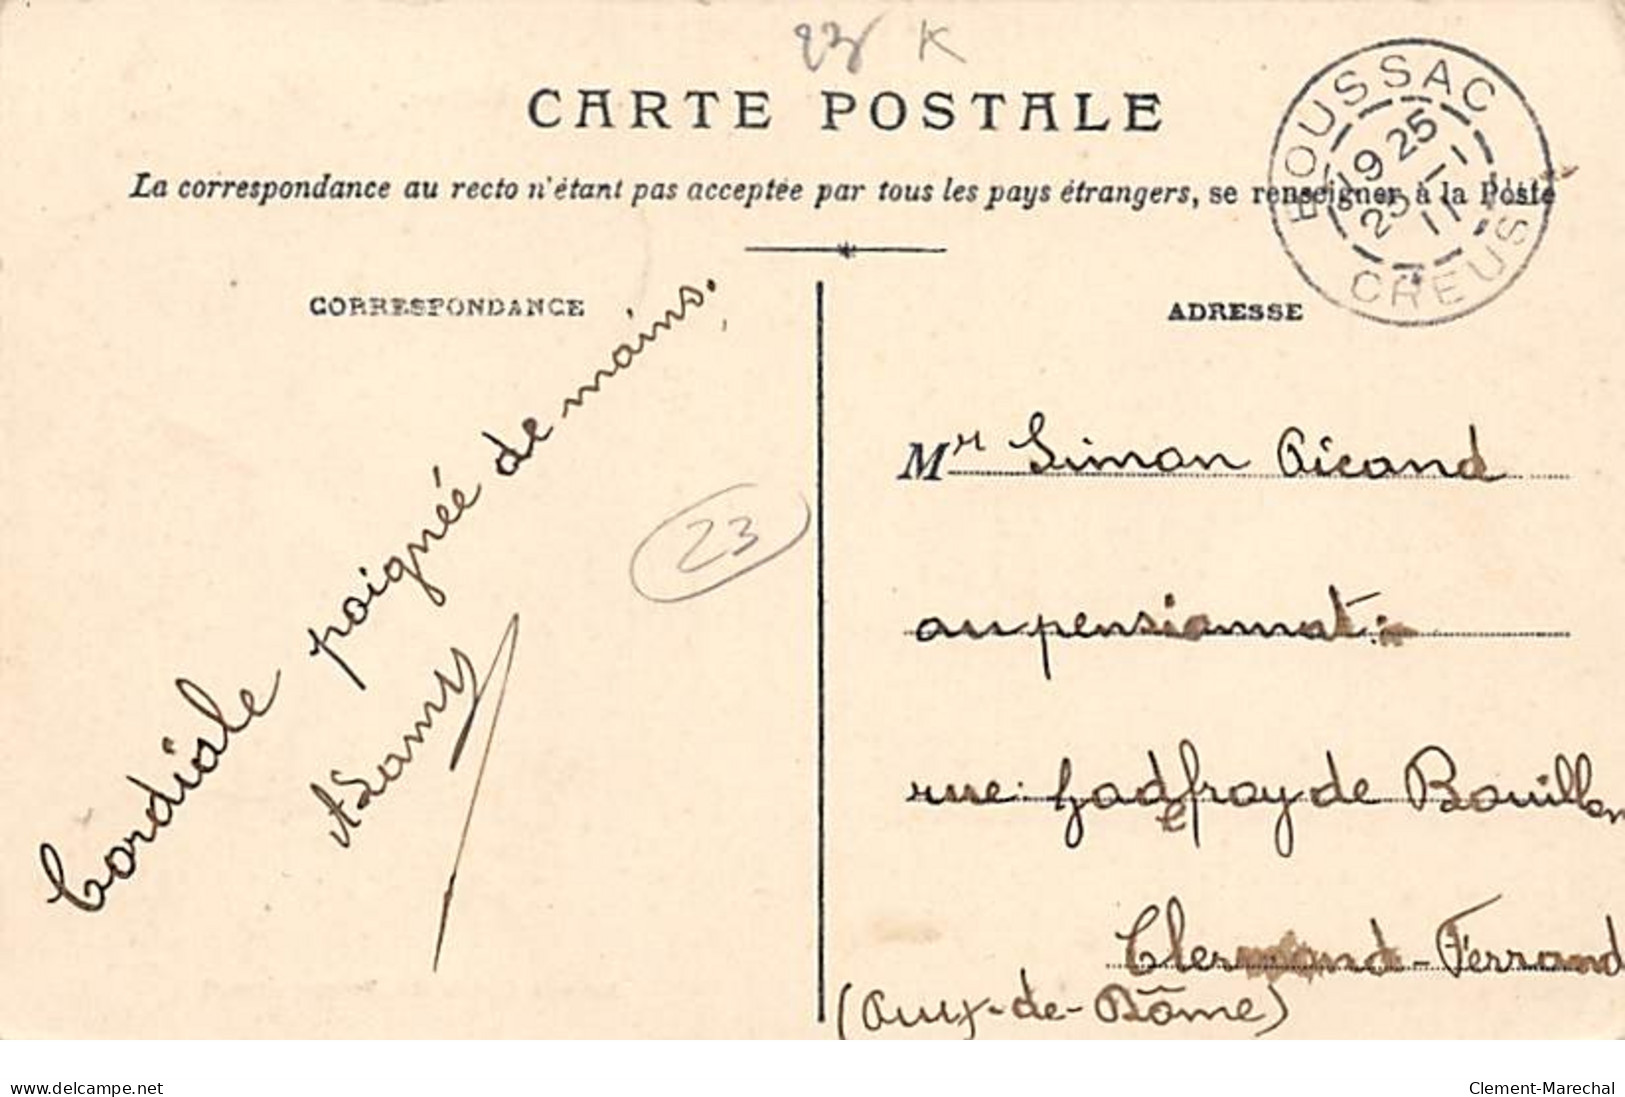 23 K
CARTE POSTALE
La correspondance au recto n'étant pas acceptée par tous les pays étrangers, se renseigner à la Poste
BOUSSAC
19 25
25 -1
11
CREUSE
CORRESPONDANCE
Cordiale poignée de mains.
A Lamy
23
ADRESSE
Mr Simon
au pensionnat
rue Godefroy de Bouillon
Clermond-Ferrand
(Puy-de-Dôme)
www.delcampe.net
Clement-Marechal